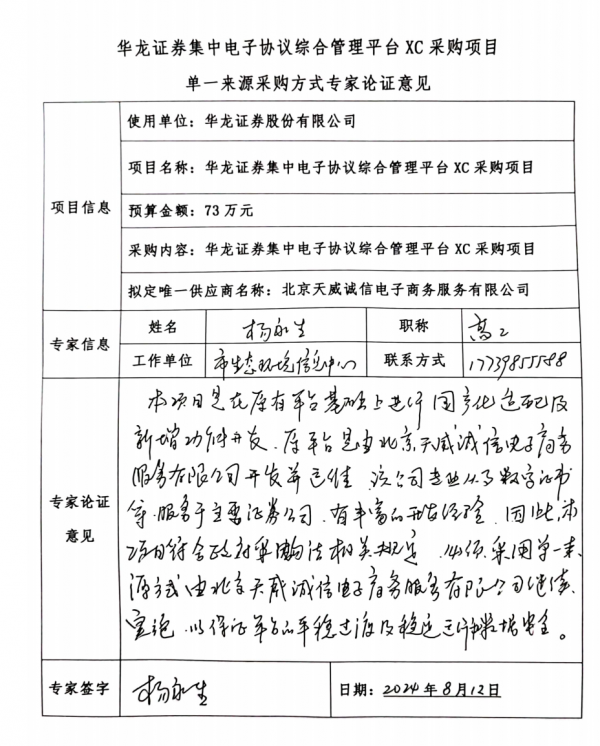 华龙证券集中电子协议综合管理平台 XC 采购项目
单一来源采购方式专家论证意见
项目信息
使用单位：华龙证券股份有限公司
项目名称：华龙证券集中电子协议综合管理平台 XC 采购项目
预算金额：73 万元
采购内容：华龙证券集中电子协议综合管理平台 XC 采购项目
拟定唯一供应商名称：北京天威诚信电子商务服务有限公司
专家信息
姓名 杨永生 职称 高工
工作单位 市生态环境信息中心 联系方式 17739855588
专家论证意见
本项目是在原有平台基础上进行国产化适配及
新增功能开发。原平台是由北京天威诚信电子商务
服务有限公司开发并运维。该公司专业从事数字证书
等，服务于主要证券公司，有丰富的开发经验。因此，本
项目符合政府采购法相关规定，必须采用单一来
源方式由北京天威诚信电子商务服务有限公司继续
实施，以保证平台的平稳过渡及稳定运行和数据安全。
专家签字 杨永生 日期：2024年8月12日